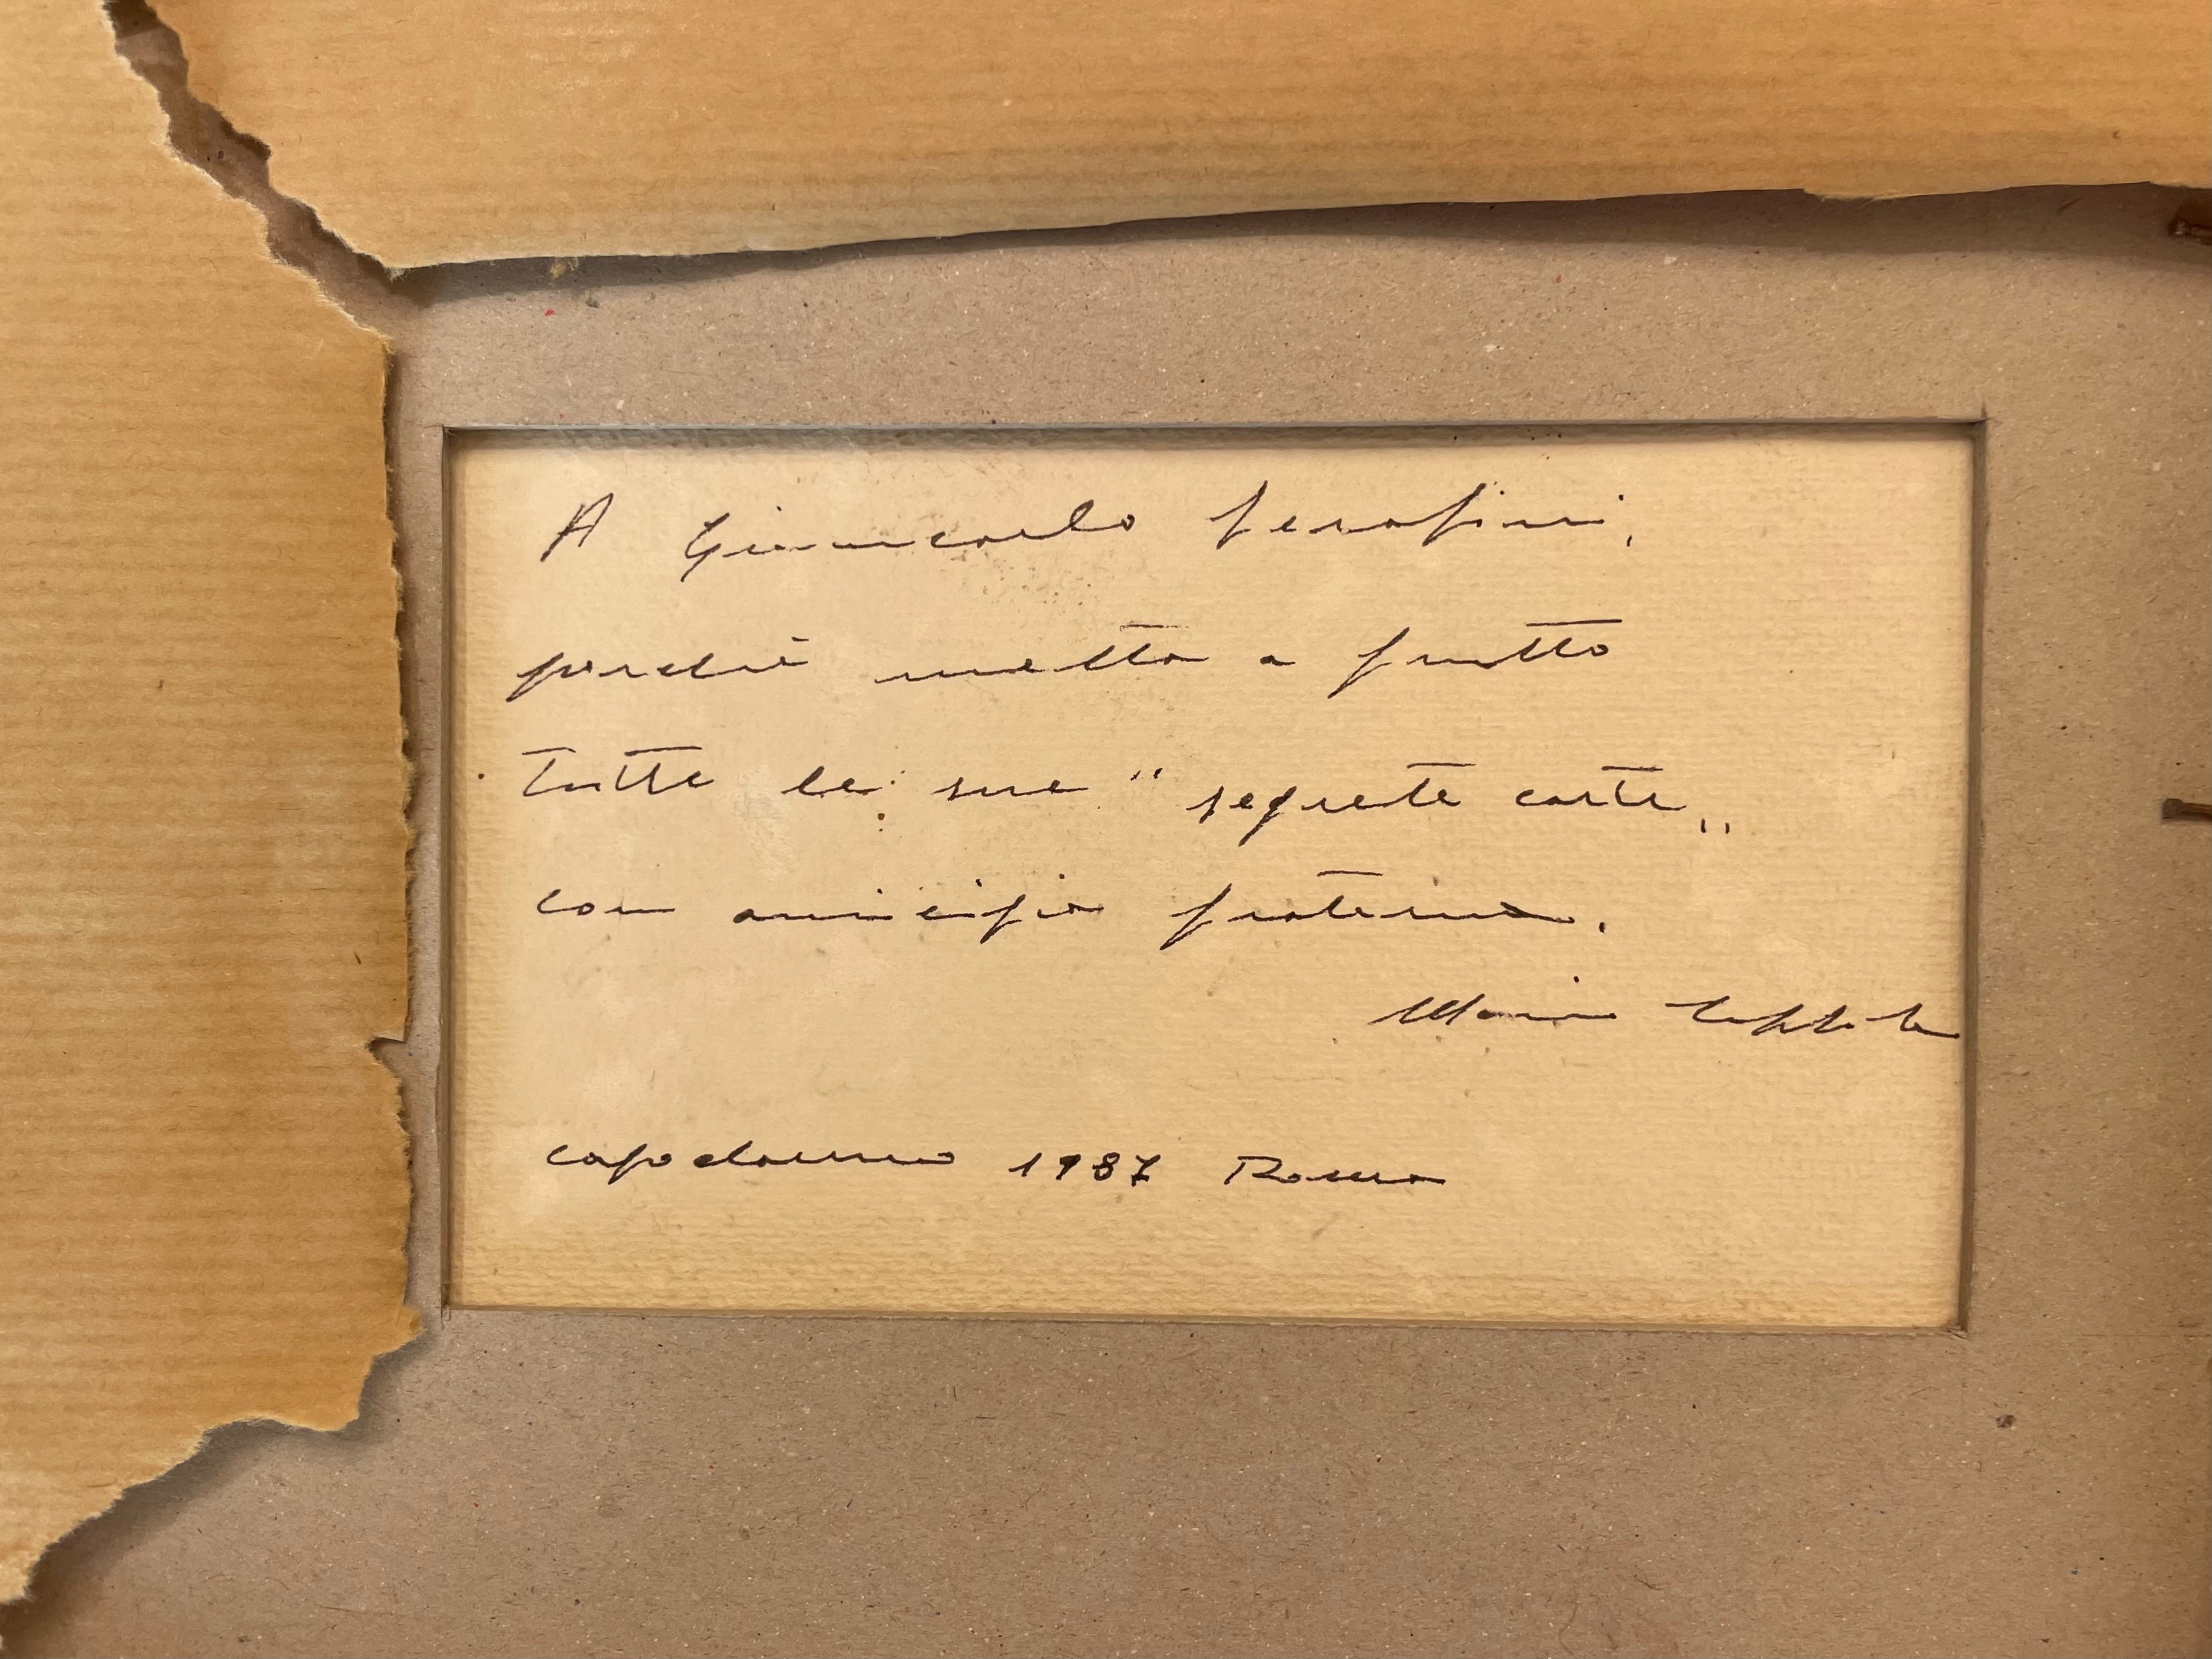 A Giancarlo Serafini,
perché metta a frutto
tutte le sue "segrete carte„
con amicizia fraterna.
Mario
capodanno 1987 Roma